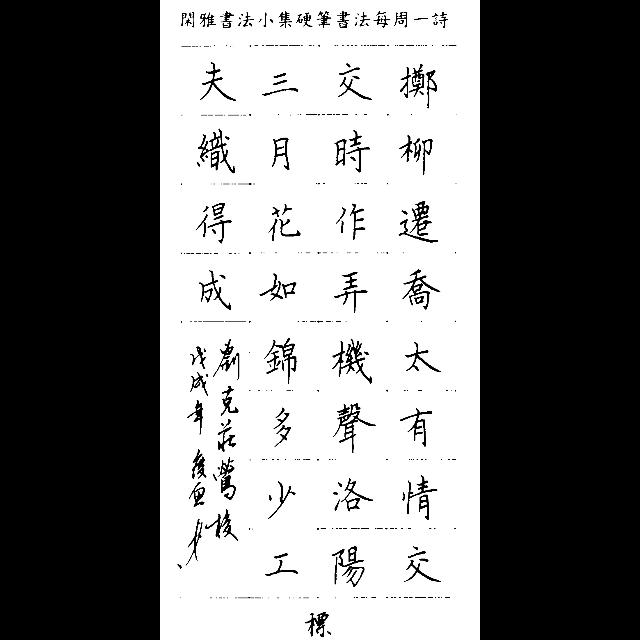 閑雅書法小集硬筆書法每周一詩
擲柳遷喬太有情交
交時作弄機聲洛陽
三月花如錦多少工
夫織得成
劉克莊鶯梭
戊戌年
標